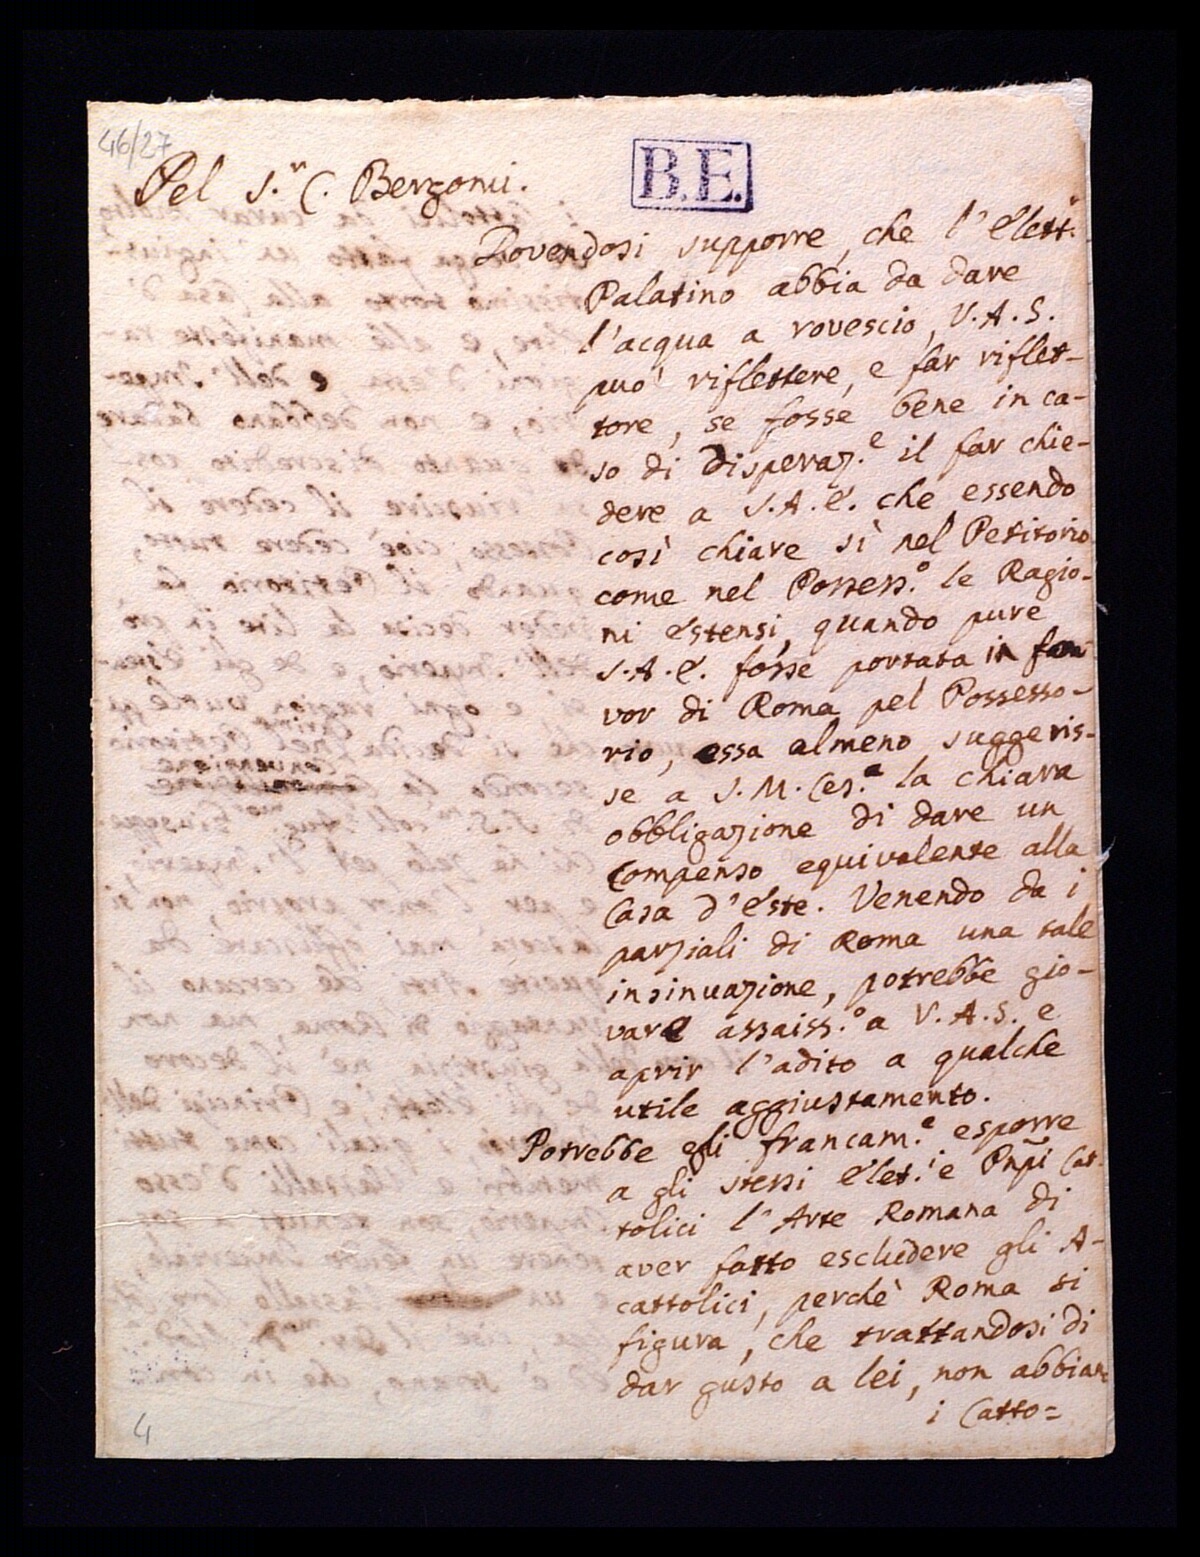 46/27
Pel S.r C. Bergomi.
B.E.
Dovendosi supporre, che l'Elett.r
Palatino abbia da dare
l'acqua a rovescio, V.A.S.
può riflettere, e far riflet-
tere, se fosse bene in ca-
so di disperaz.e il far chie-
dere a S.A.E. che essendo
così chiare sì nel Petitorio
come nel Possess.o le Ragio-
ni Estensi, quando pure
S.A.E. fosse portata in fa-
vor di Roma pel Possesso-
rio, essa almeno suggeris-
se a S.M.Ces.a la chiara
obbligazione di dare un
Compenso equivalente alla
Casa d'Este. Venendo da i
parziali di Roma una tale
insinuazione, potrebbe gio-
vare assaiss.o a V.A.S. e
aprir l'adito a qualche
utile aggiustamento.
Potrebbe egli francam.e esporre
a gli stessi Elet.i e Pnpi Cat-
tolici l'Arte Romana di
aver fatto escludere gli A-
cattolici, perchè Roma si
figura, che trattandosi di
dar gusto a lei, non abbian
i Catto=
4